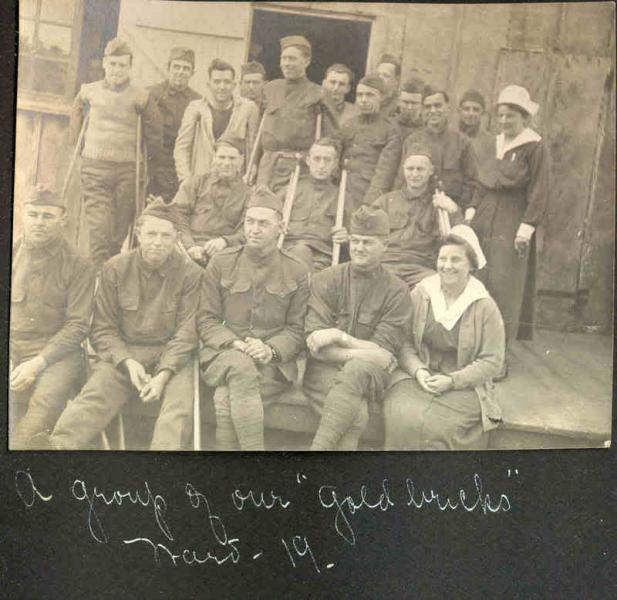 A group of our "gold bricks"
Ward - 19.